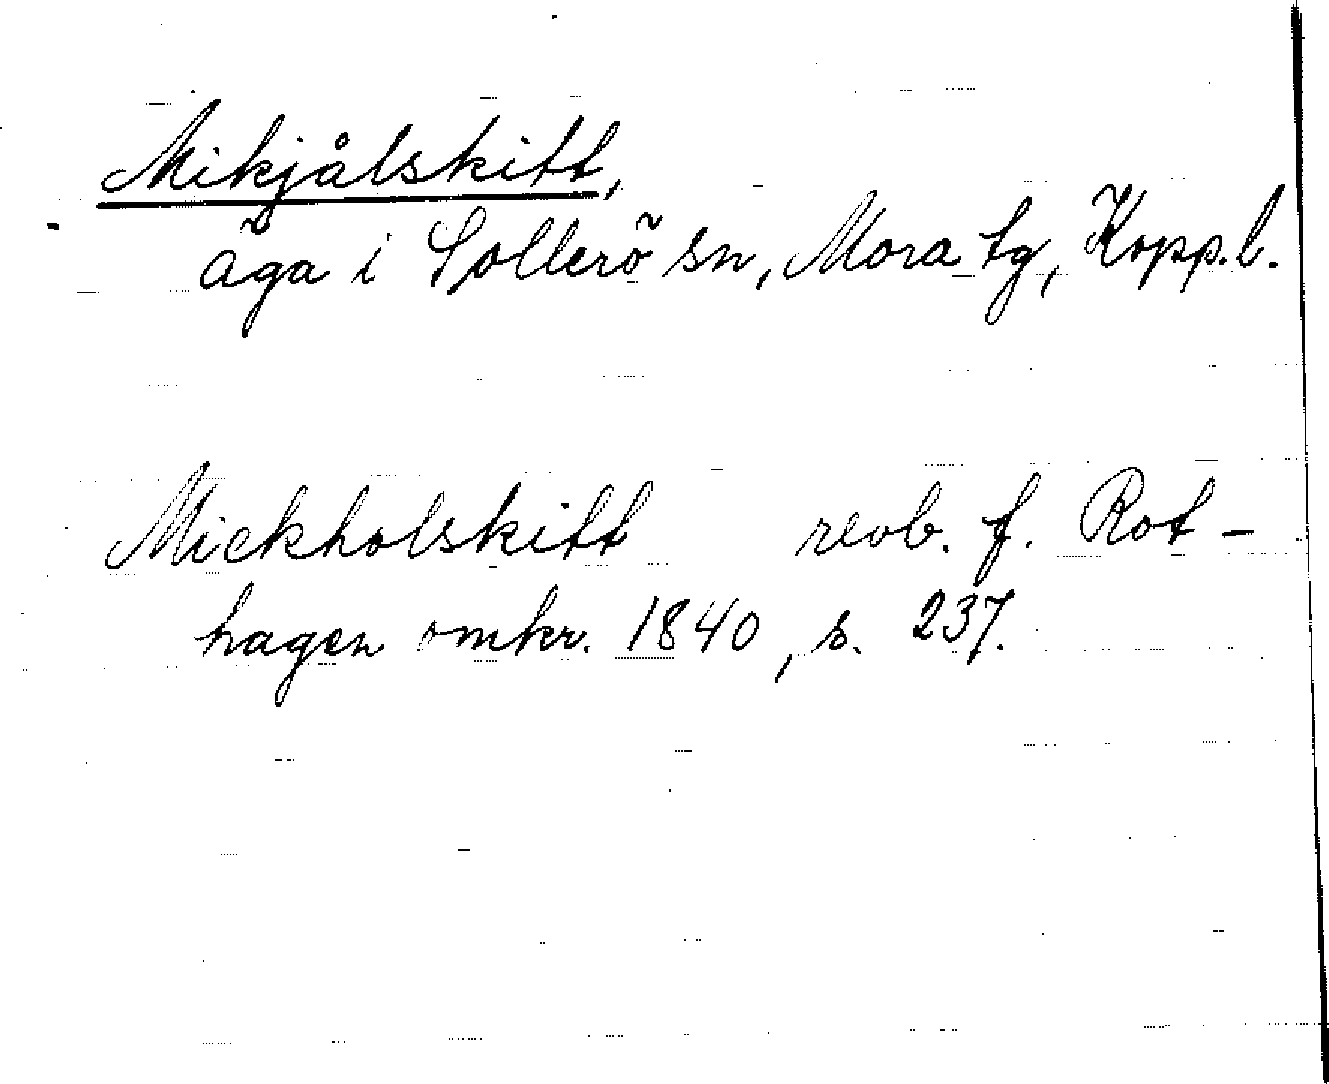 Mikjålskitt,
äga i Sollerö sn, Mora tg, Kopp.l.
Mickholskitt revb. f. Rot-
hagen omkr. 1840, s. 237.